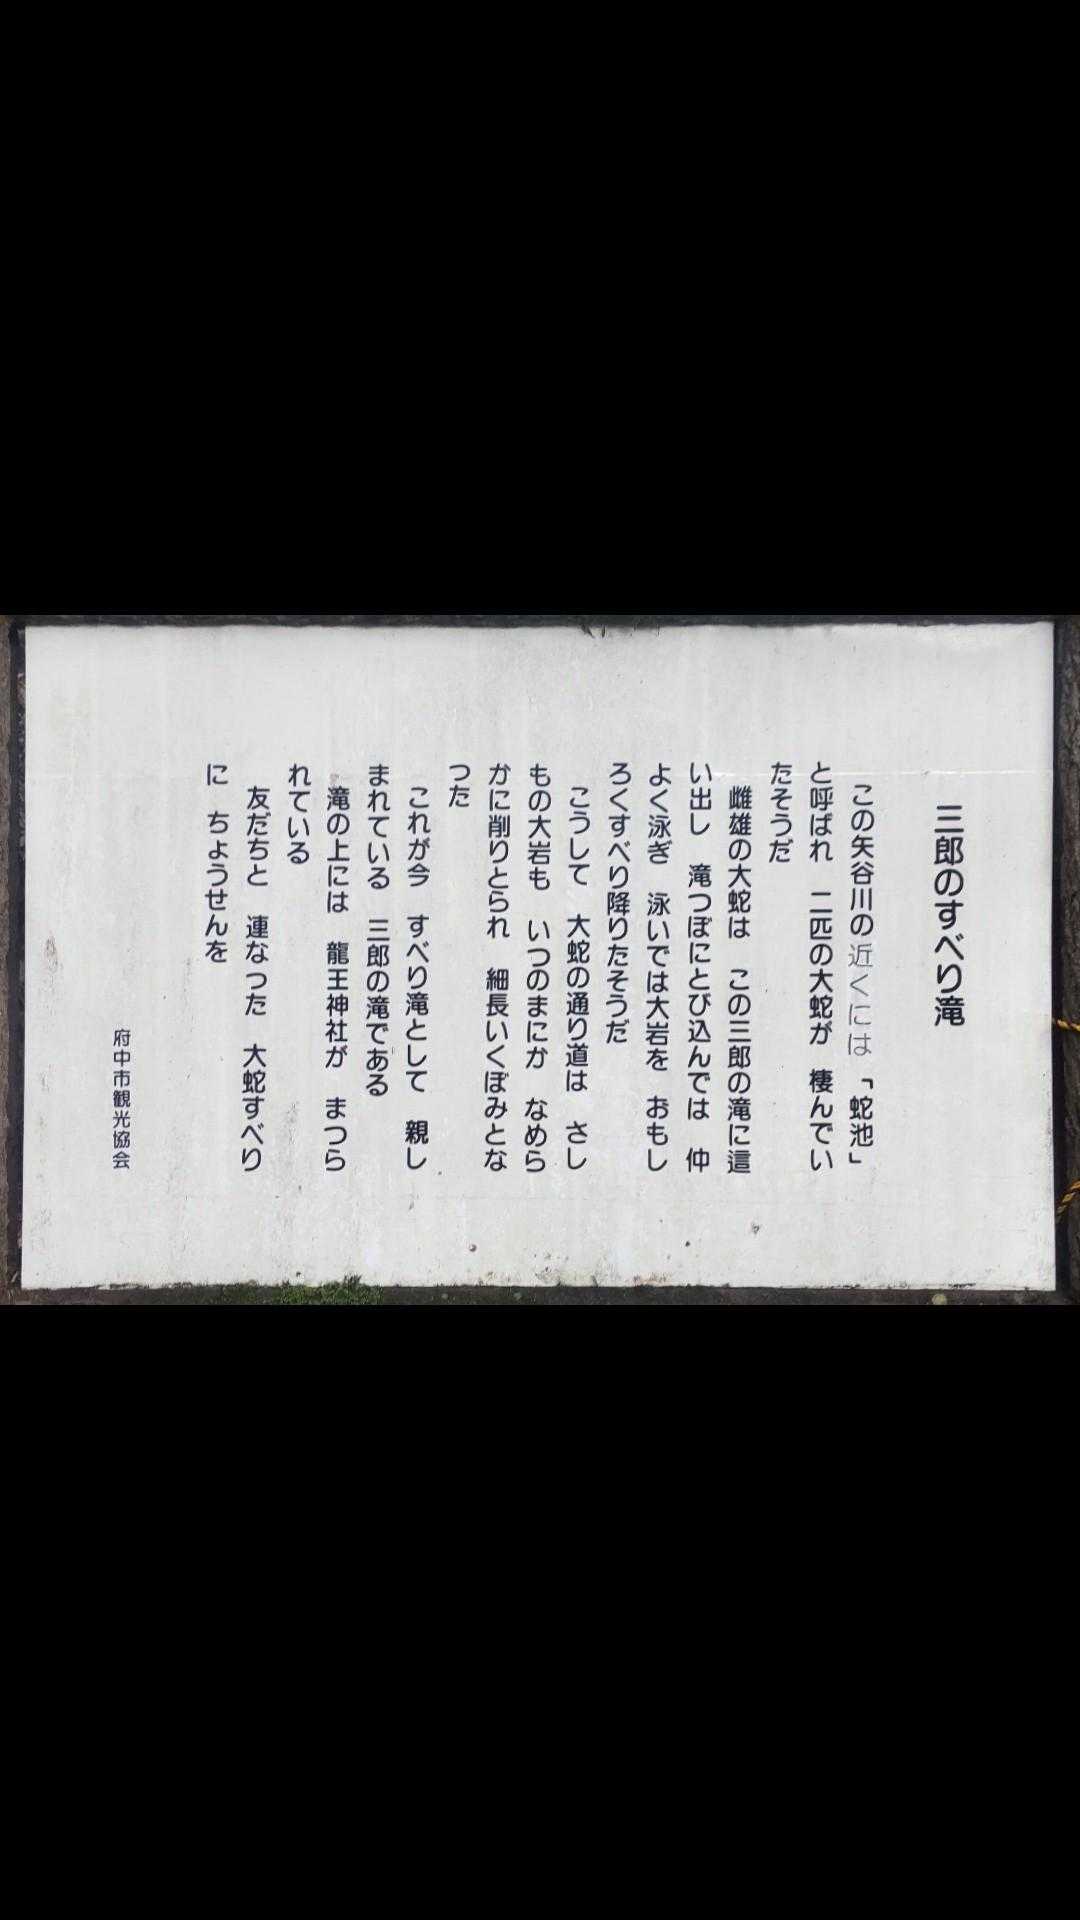 三郎のすべり滝
この矢谷川の近くには「蛇池」
と呼ばれ 二匹の大蛇が 棲んでい
たそうだ
雌雄の大蛇は この三郎の滝に這
い出し 滝つぼにとび込んでは 仲
よく泳ぎ 泳いでは大岩を おもし
ろくすべり降りたそうだ
こうして 大蛇の通り道は さし
もの大岩も いつのまにか なめら
かに削りとられ 細長いくぼみとな
つた
これが今 すべり滝として 親し
まれている 三郎の滝である
滝の上には 龍王神社が まつら
れている
友だちと 連なった 大蛇すべり
に ちょうせんを
府中市観光協会